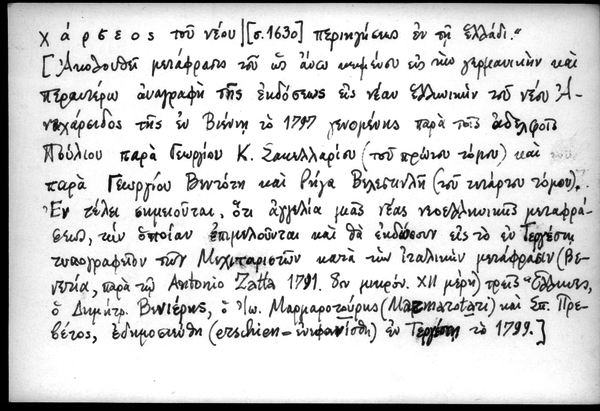 χάρσεος τοῦ νέου [σ.1630] περιηγήσεως ἐν τῇ Ἑλλάδι."
[Ἀκολουθεῖ μετάφρασις τοῦ ὡς ἄνω κειμένου εἰς τὴν γερμανικὴν καὶ
περαιτέρω ἀναγραφὴ τῆς ἐκδόσεως εἰς νέαν ἑλληνικὴν τοῦ νέου Ἀ-
ναχάρσιδος τῆς ἐν Βιέννῃ τὸ 1797 γενομένης παρὰ τοῖς ἀδελφοῖς
Πούλιου παρὰ Γεωργίου Κ. Σακελλαρίου (τοῦ πρώτου τόμου) καὶ
παρὰ Γεωργίου Βεντότη καὶ Ρήγα Βελεστινλῆ (τοῦ τετάρτου τόμου).
Ἐν τέλει σημειοῦται, ὅτι ἀγγελία μιᾶς νέας νεοελληνικῆς μεταφρά-
σεως, τὴν ὁποίαν ἐπιμελοῦνται καὶ θὰ ἐκδώσουν εἰς τὸ ἐν Τεργέστῃ
τυπογραφεῖον τῶν Μεχιταριστῶν κατὰ τὴν ἰταλικὴν μετάφρασιν (Βε-
νετία, παρὰ τῷ Antonio Zatta 1791. δεν μικρόν. XII μέρη) τρεῖς Ἕλληνες,
ὁ Δημήτρ. Βενιέρης, ὁ Ἰω. Μαρμαροτούρης (Marmarotari) καὶ Σπ. Πρε-
βέτος, ἐδημοσιεύθη (erschien = ἐνεφανίσθη) ἐν Τεργέστῃ τὸ 1799.]